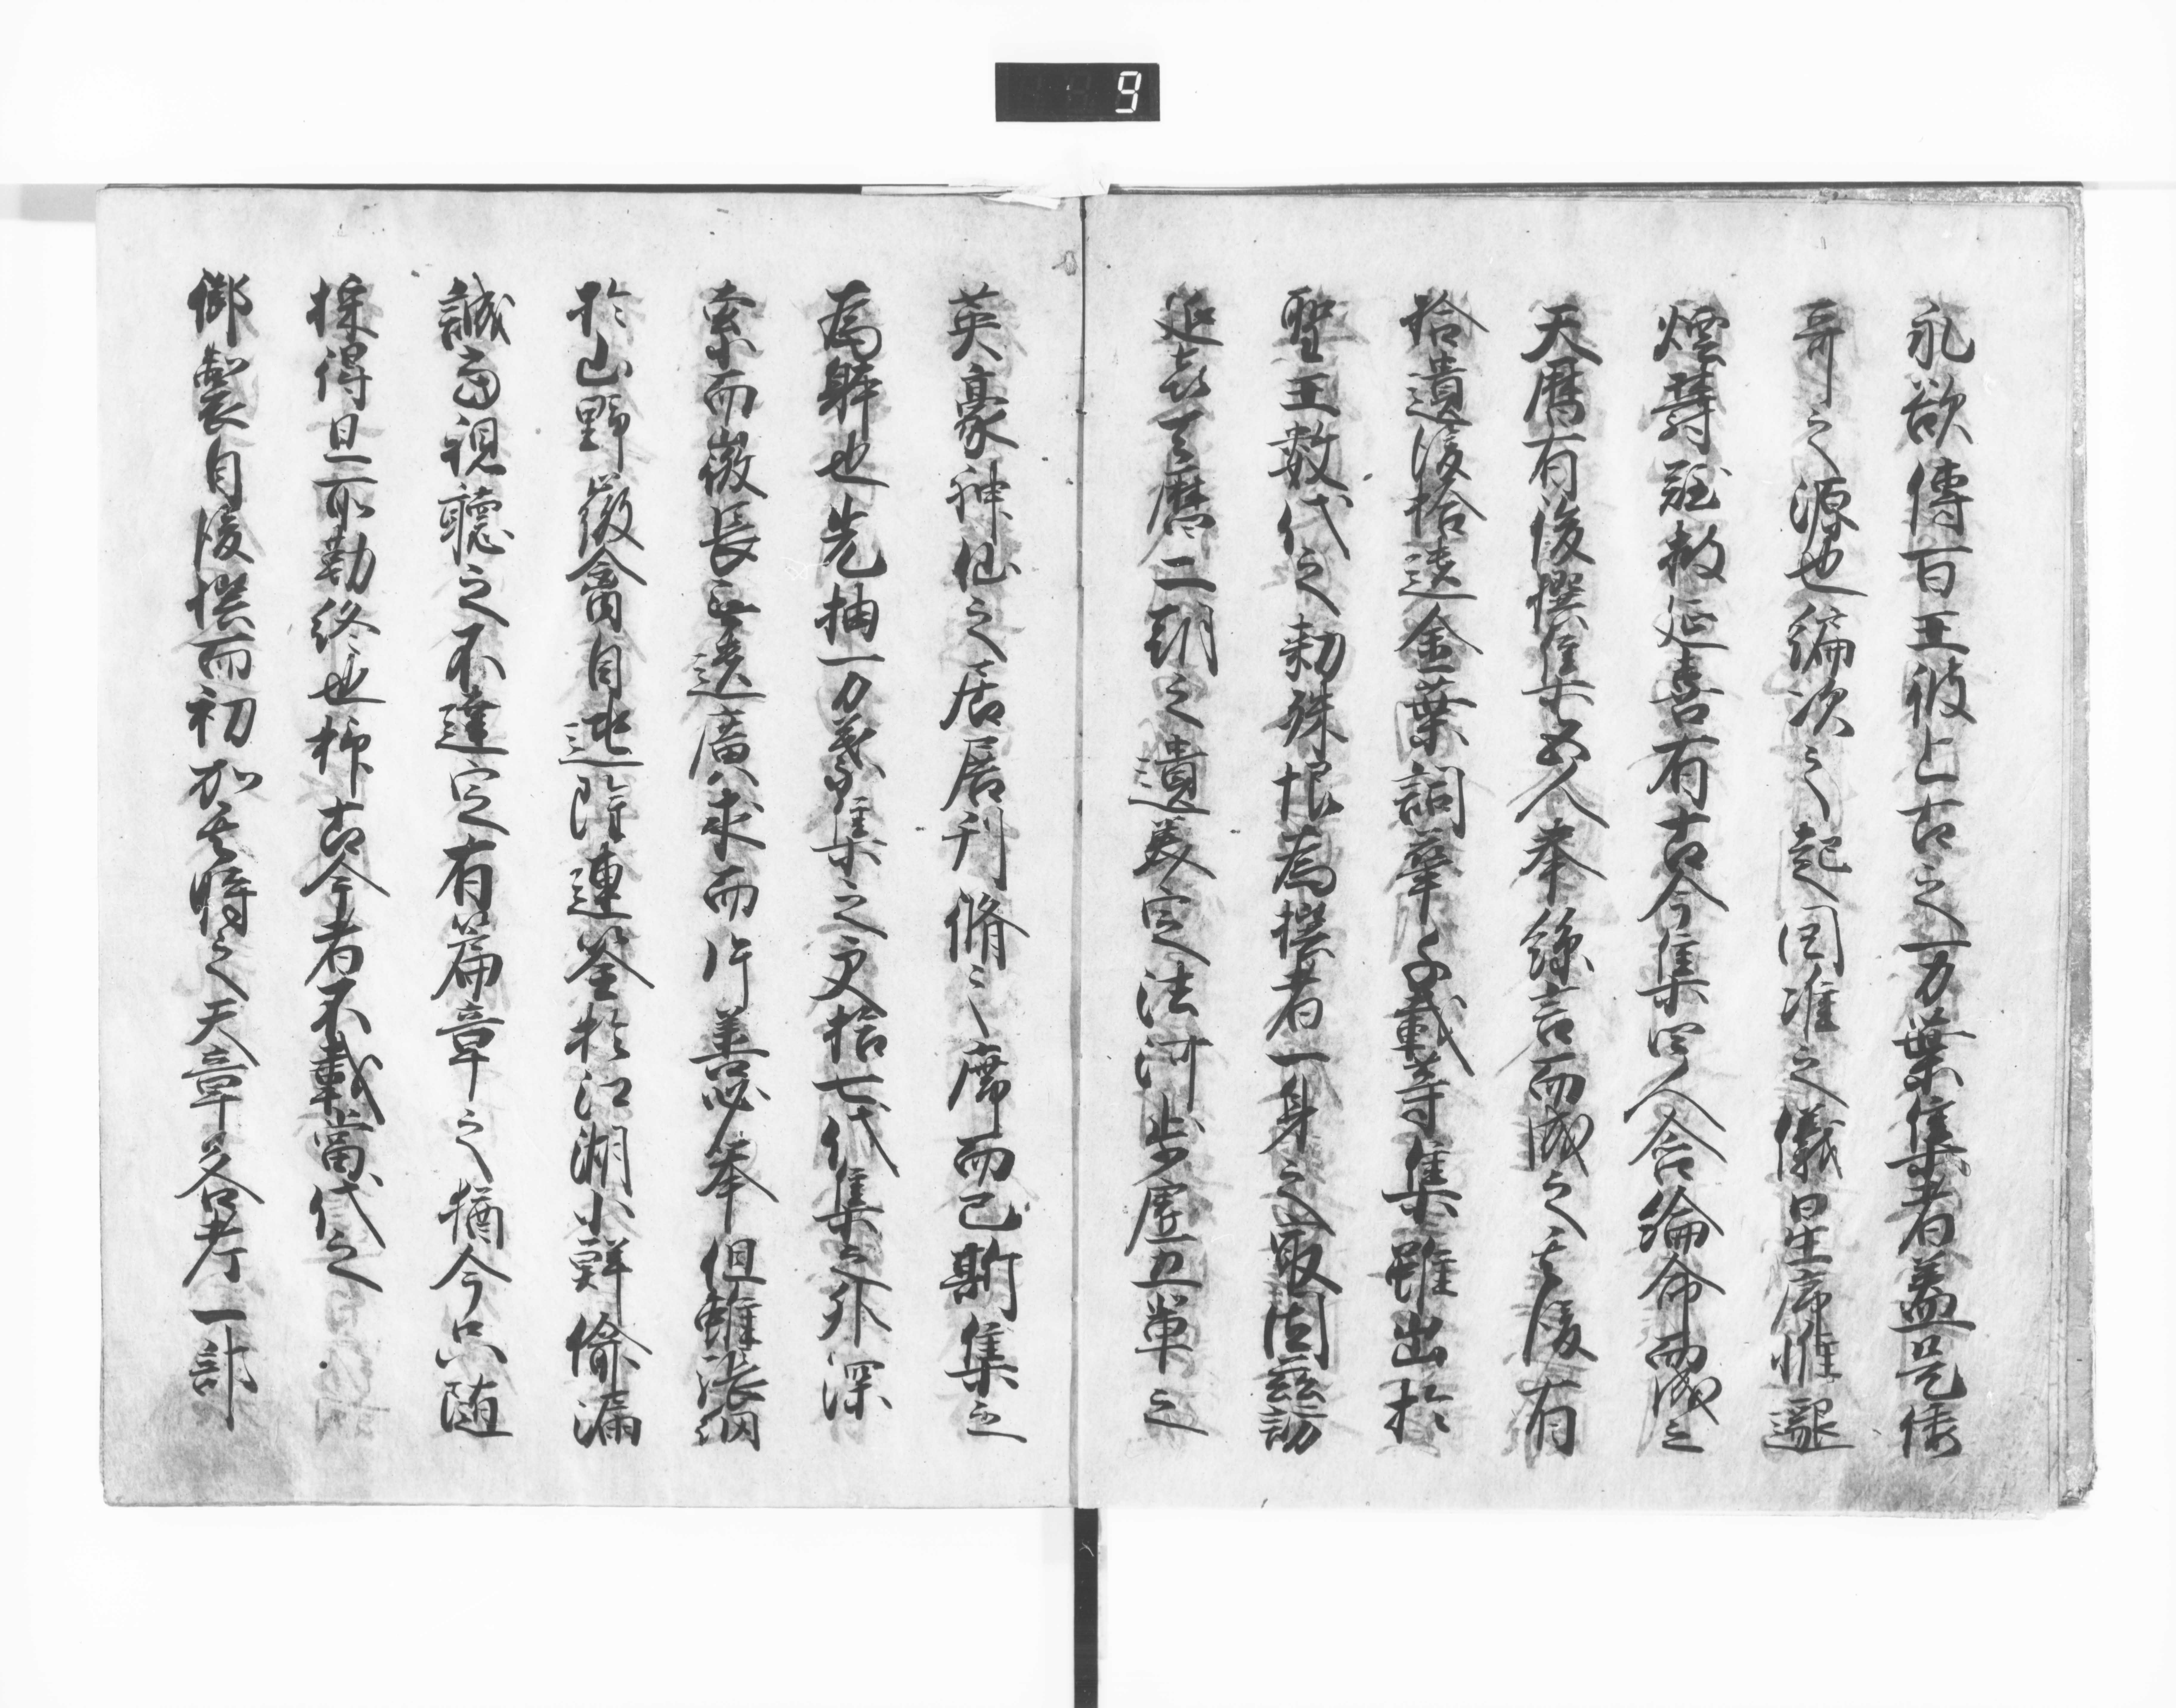 9
永欲傳百王彼上古之万葉集者蓋是倭
哥之源也編次之起因准之儀星序惟邈
煙欝難披延喜有古今集四人含綸命而成之
天暦有後撰集五人奉絲言而成之其後有
拾遺後拾遺金葉詞華千載等集雖出於
聖王數代之勅殊恨為撰者一身之最因茲訪
延喜天暦二朝之遺美定法河歩虚五輩之
英豪神仙之居展刊脩之席而已斯集之
為躰也先抽万葉集之中更拾七代集之外深
索而微長無遺廣求而片善必擧但雖張網
於山野微禽自逃雖連筌於江湖小鮮偸漏
誠當視聽之不達定有篇章之猶今只随
採得且所勒終也抑古今者不載當代之
御製自後撰而初加其時之天章各考一部